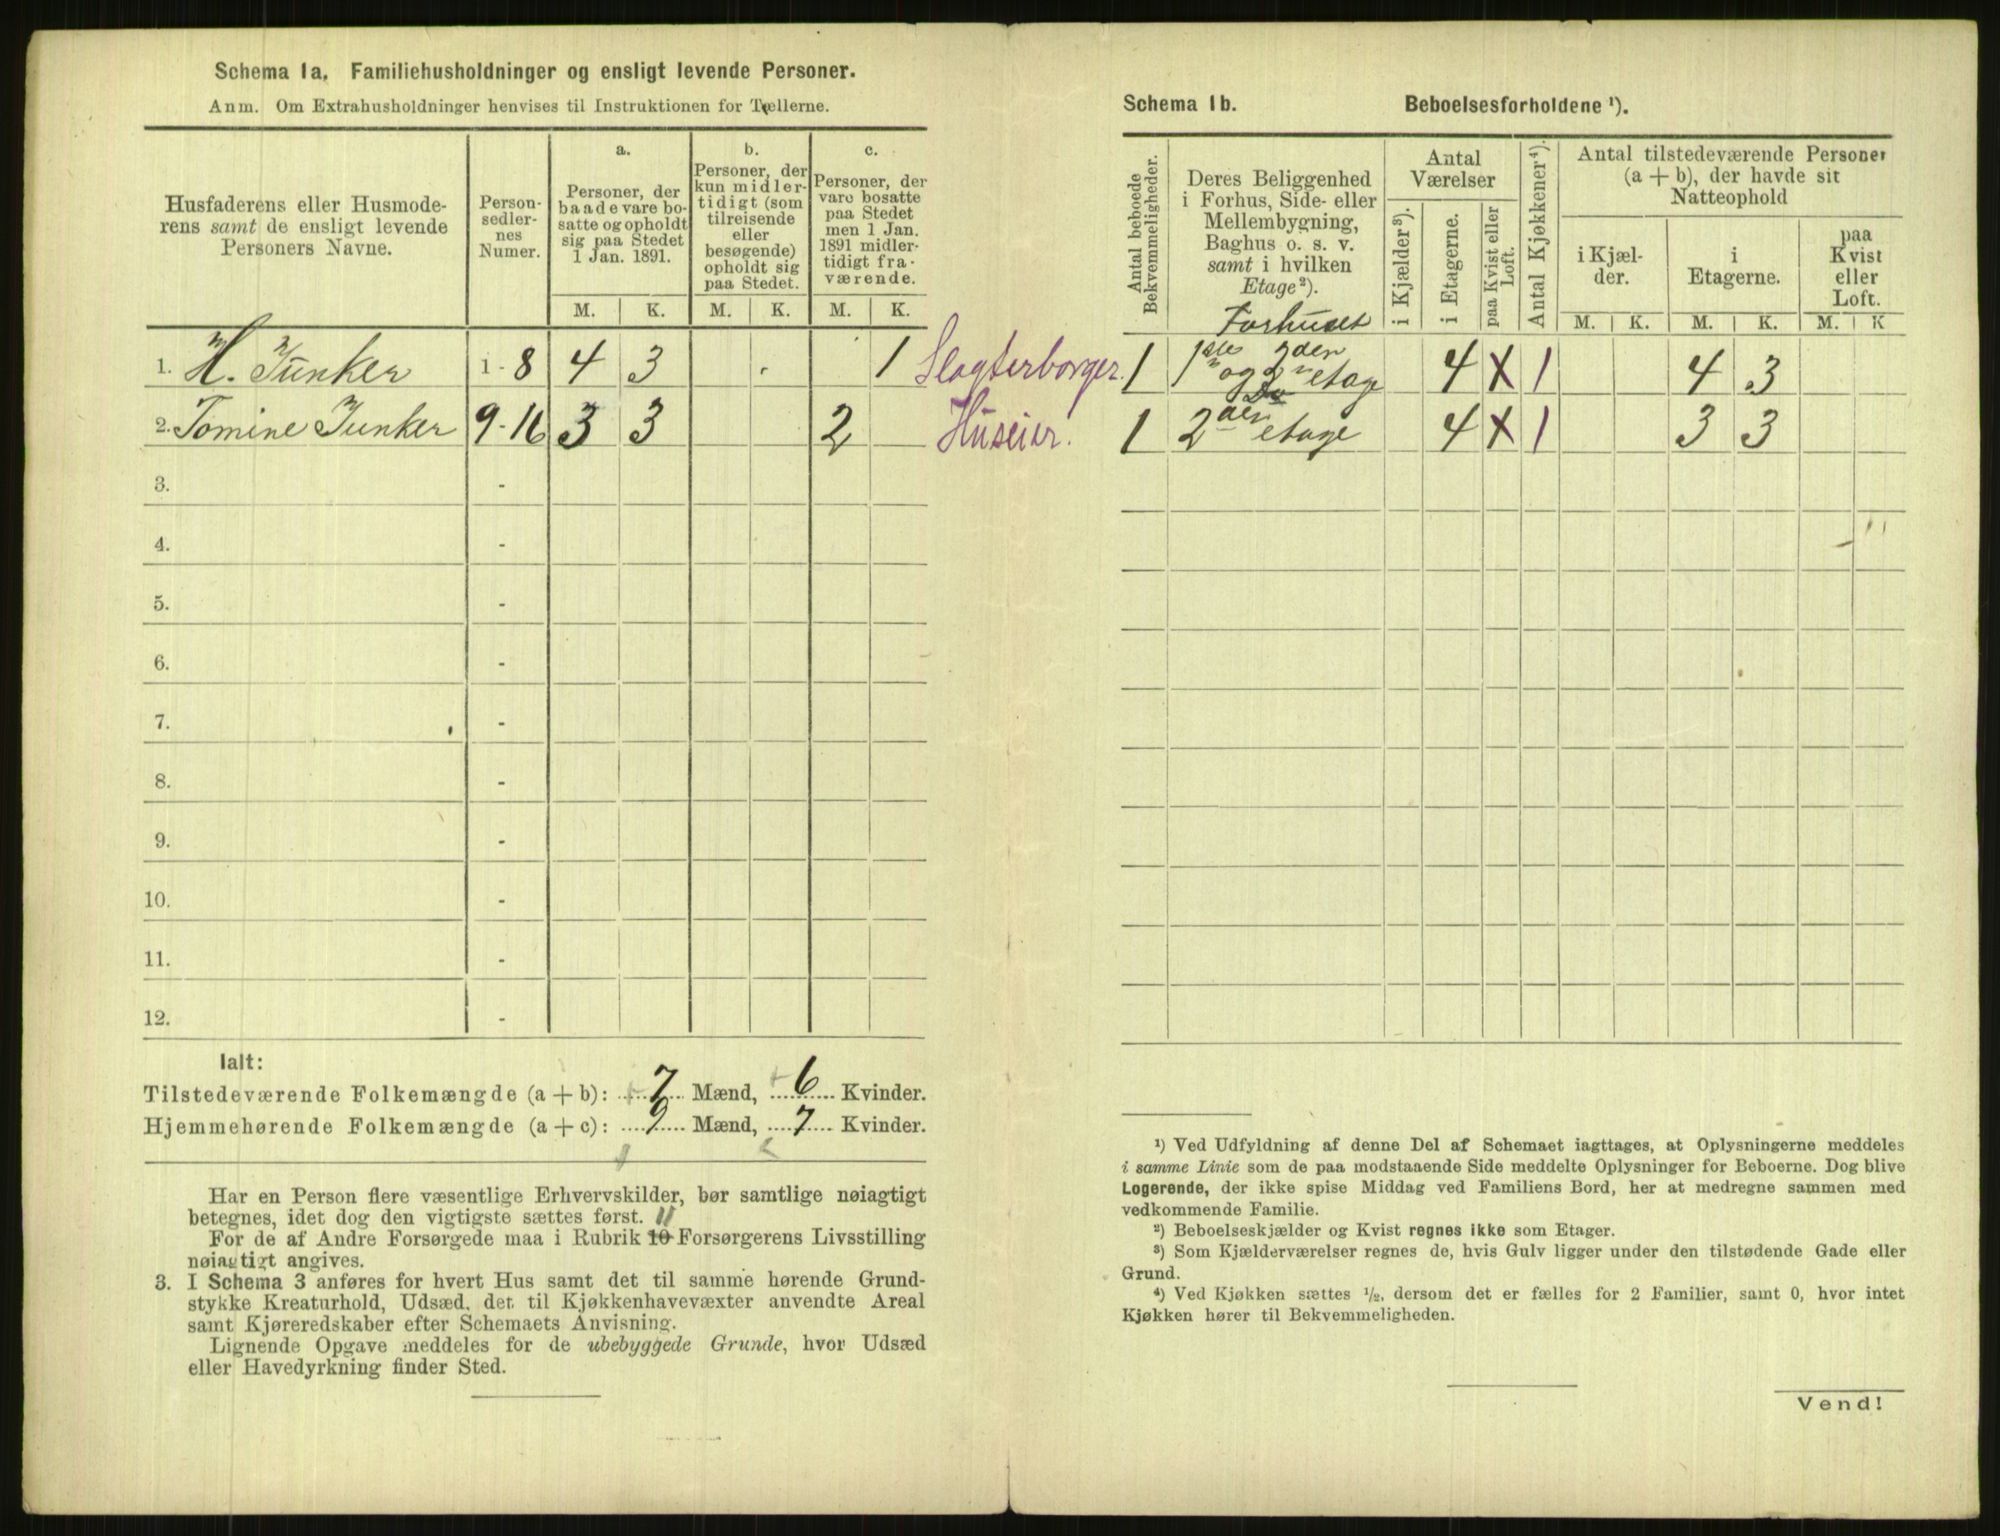 Schema 1a. Familiehusholdninger og ensligt levende Personer.
Anm. Om Extrahusholdninger henvises til Instruktionen for Tællerne.
Husfaderens eller Husmoderens samt de ensligt levende Personers Navne.
Person-sedlernes Numer.
a.
Personer, der baade vare bosatte og opholdt sig paa Stedet 1 Jan. 1891.
b.
Personer, der kun midlertidigt (som tilreisende eller besøgende) opholdt sig paa Stedet.
c.
Personer, der vare bosatte paa Stedet men 1 Jan. 1891 midlertidigt fraværende.
M. K. M. K. M. K.
1. H. Junker 1-8 4 3 1 Slagterborger.
2. Tomine Junker 9-16 3 3 2 Huseier.
3. -
4. -
5. -
6. -
7. -
8. -
9. -
10. -
11. -
12. -
Ialt:
Tilstedeværende Folkemængde (a + b): 7 Mænd, 6 Kvinder.
Hjemmehørende Folkemængde (a + c): 9 Mænd, 7 Kvinder.
Har en Person flere væsentlige Erhvervskilder, bør samtlige nøiagtigt
betegnes, idet dog den vigtigste sættes først.
11
For de af Andre Forsørgede maa i Rubrik 10 Forsørgerens Livsstilling
nøiagtigt angives.
3. I Schema 3 anføres for hvert Hus samt det til samme hørende Grund-
stykke Kreaturhold, Udsæd, det til Kjøkkenhavevæxter anvendte Areal
samt Kjøreredskaber efter Schemaets Anvisning.
Lignende Opgave meddeles for de ubebyggede Grunde, hvor Udsæd
eller Havedyrkning finder Sted.
Schema 1b. Beboelsesforholdene ¹).
Antal beboede Bekvemmeligheder.
Deres Beliggenhed i Forhus, Side- eller Mellembygning, Baghus o. s. v. samt i hvilken Etage²).
Antal Værelser
i Kjælder³).
i Etagerne.
paa Kvist eller Loft.
Antal Kjøkkener⁴).
Antal tilstedeværende Personer (a + b), der havde sit Natteophold
i Kjælder.
i Etagerne.
paa Kvist eller Loft.
M. K. M. K. M. K
Forhuset
1 1ste og 2den etage 4 X 1 4 3
Do
1 2den etage 4 X 1 3 3
¹) Ved Udfyldning af denne Del af Schemaet iagttages, at Oplysningerne meddeles
i samme Linie som de paa modstaaende Side meddelte Oplysninger for Beboerne. Dog blive
Logerende, der ikke spise Middag ved Familiens Bord, her at medregne sammen med
vedkommende Familie.
²) Beboelseskjælder og Kvist regnes ikke som Etager.
³) Som Kjælderværelser regnes de, hvis Gulv ligger under den tilstødende Gade eller
Grund.
⁴) Ved Kjøkken sættes ½, dersom det er fælles for 2 Familier, samt 0, hvor intet
Kjøkken hører til Bekvemmeligheden.
Vend!